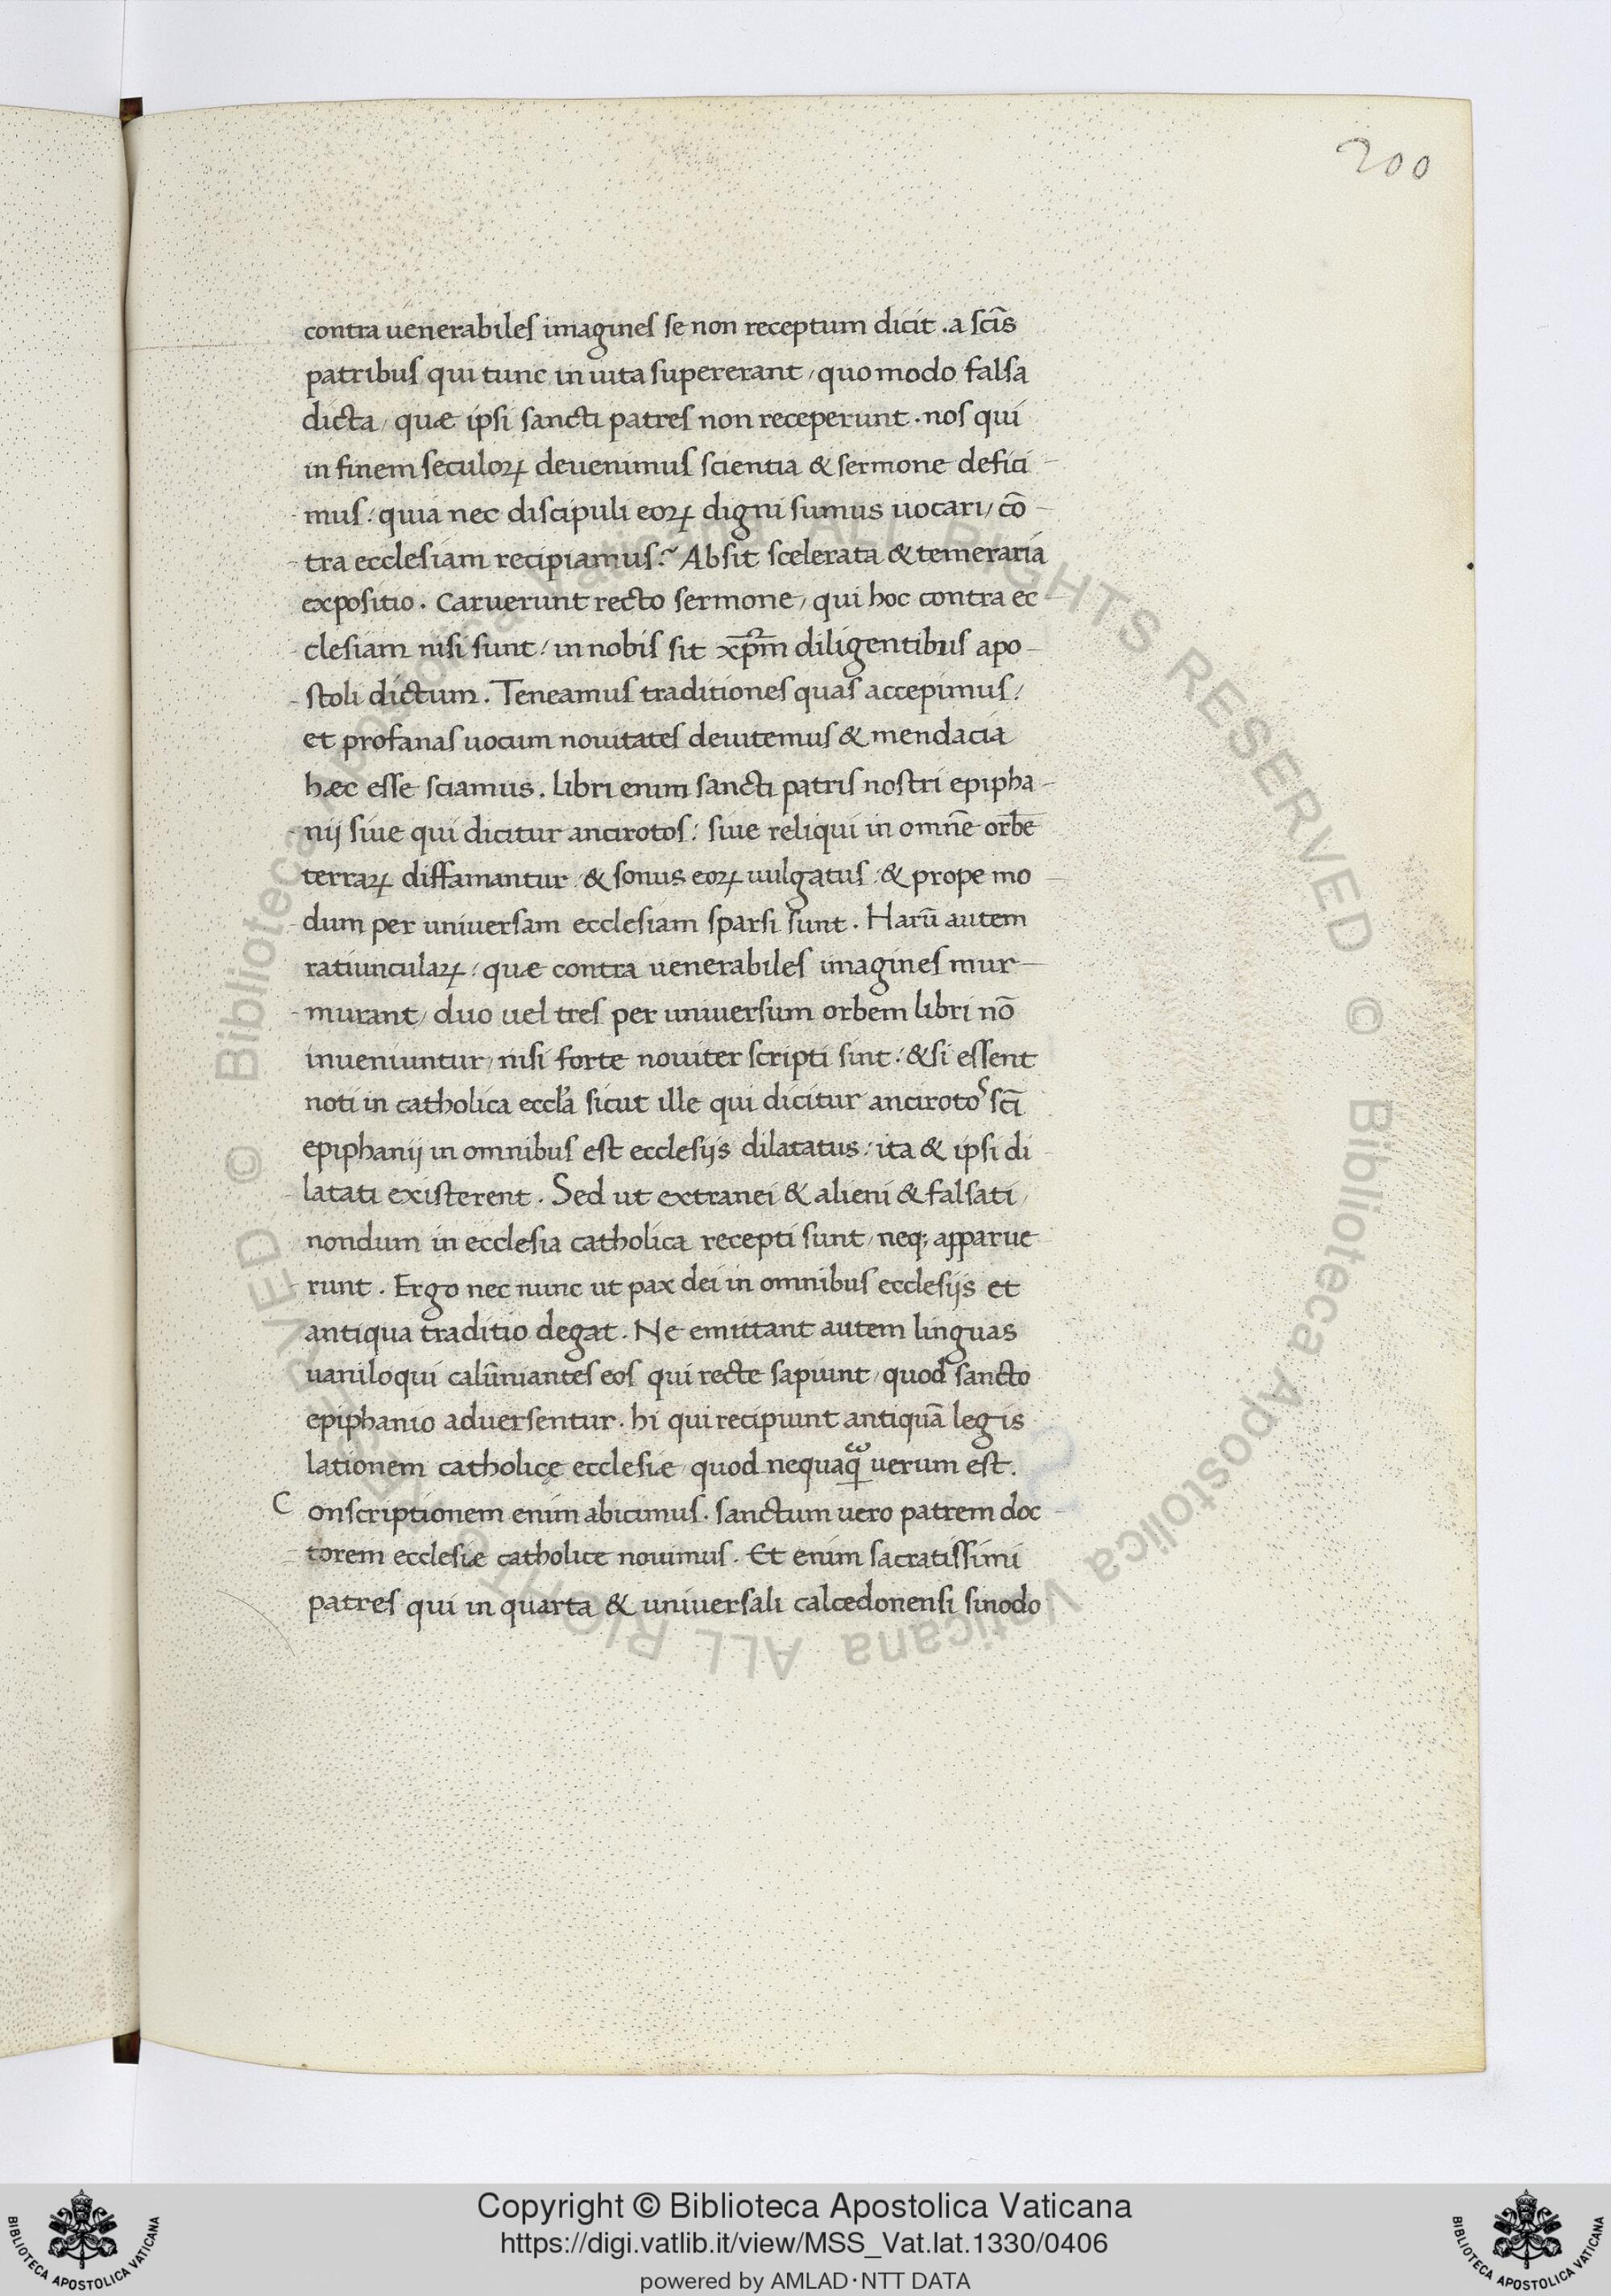 200
contra uenerabiles imagines se non receptum dicit . a sc̅is
patribus qui tunc in uita supererant / quomodo falsa
dicta / quæ ipsi sancti patres non receperunt . nos qui
in finem seculoꝝ deuenimus scientia & sermone defici-
mus : quia nec discipuli eoꝝ digni sumus uocari / co̅-
tra ecclesiam recipiamus ? Absit scelerata & temeraria
expositio . caruerunt recto sermone / qui hoc contra ec
clesiam nisi sunt : in nobis sit xp̅m diligentibus apo-
stoli dictum . Teneamus traditiones quas accepimus :
et profanas uocum nouitates deuitemus & mendacia
hæc esse sciamus . libri enim sancti patris nostri epipha-
nij siue qui dicitur ancirotos : siue reliqui in omne̅ orbe̅
terraꝝ diffamantur & sonus eoꝝ uulgatus & prope mo-
dum per uniuersam ecclesiam sparsi sunt . Haru̅ autem
ratiunculaꝝ : quæ contra uenerabiles imagines mur-
murant / duo uel tres per uniuersum orbem libri no̅
inueniuntur / nisi forte nouiter scripti sint : & si essent
noti in catholica eccl̅a sicut ille qui dicitur ancirotos sc̅i
epiphanij in omnibus est ecclesijs dilatatus : ita & ipsi di
latati existerent . Sed ut extranei & alieni & falsati /
nondum in ecclesia catholica recepti sunt / neq; apparue
runt . Ergo nec nunc ut pax dei in omnibus ecclesijs et
antiqua traditio degat . Ne emittant autem linguas
uaniloqui calu̅niantes eos qui recte sapiunt / quod sancto
epiphanio aduersentur . hi qui recipiunt antiqua̅ legis
lationem catholicę ecclesiæ / quod nequaꝗ uerum est .
Conscriptionem enim abicimus . sanctum uero patrem doc-
torem ecclesiæ catholice nouimus . Et enim sacratissimi
patres qui in quarta & uniuersali calcedonensi sinodo
© Biblioteca Apostolica Vaticana ALL RIGHTS RESERVED © Biblioteca Apostolica Vaticana ALL RIGHTS RESERVED
Copyright © Biblioteca Apostolica Vaticana
https://digi.vatlib.it/view/MSS_Vat.lat.1330/0406
powered by AMLAD·NTT DATA
BIBLIOTECA APOSTOLICA VATICANA
BIBLIOTECA APOSTOLICA VATICANA